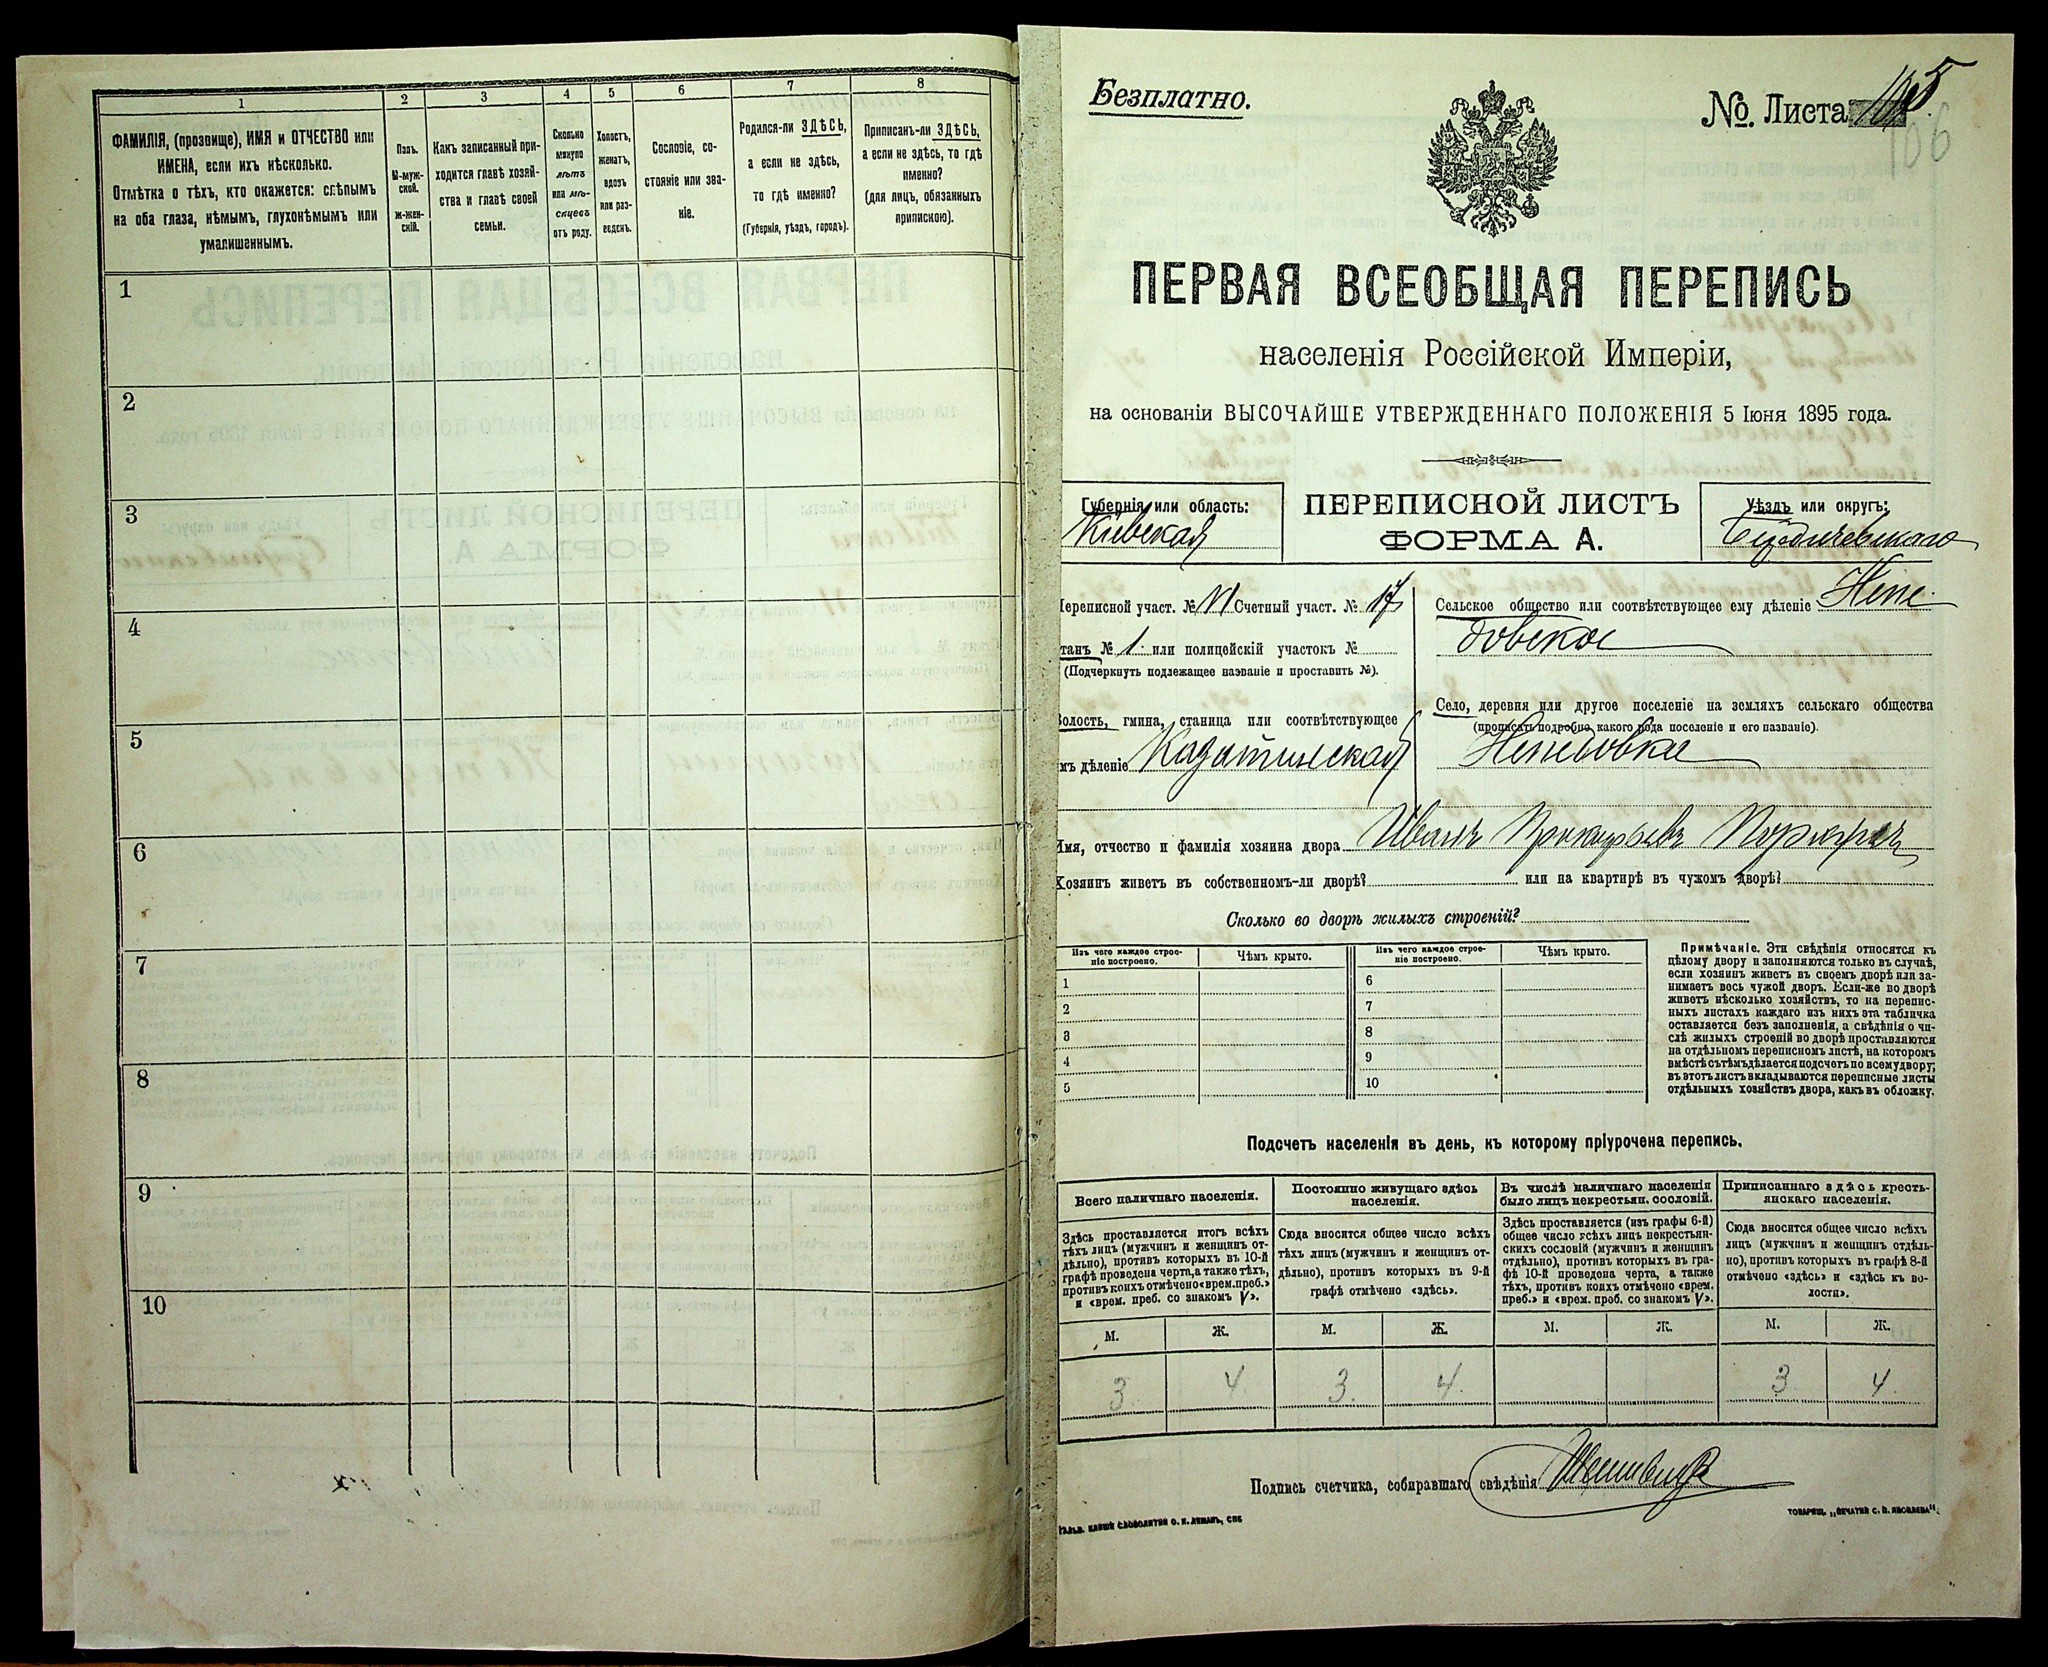 1
ФАМИЛІЯ, (прозвище), ИМЯ и ОТЧЕСТВО или
ИМЕНА, если ихъ нѣсколько.
Отмѣтка о тѣхъ, кто окажется: слѣпымъ
на оба глаза, нѣмымъ, глухонѣмымъ или
умалишеннымъ.
2
Полъ.
М-муж-
ской.
ж-жен-
скій.
3
Какъ записанный при-
ходится главѣ хозяй-
ства и главѣ своей
семьи.
4
Сколько
минуло
лѣтъ
или мѣ-
сяцевъ
отъ роду.
5
Холостъ,
женатъ,
вдовъ
или раз-
веденъ.
6
Сословіе, со-
стояніе или зва-
ніе.
7
Родился-ли ЗДѢСЬ,
а если не здѣсь,
то гдѣ именно?
(Губернія, уѣздъ, городъ).
8
Приписанъ-ли ЗДѢСЬ,
а если не здѣсь, то гдѣ
именно?
(для лицъ, обязанныхъ
припискою).
1
2
3
4
5
6
7
8
9
10
Безплатно.
№. Листа
106
ПЕРВАЯ ВСЕОБЩАЯ ПЕРЕПИСЬ
населенія Россійской Имперіи,
на основаніи ВЫСОЧАЙШЕ УТВЕРЖДЕННАГО ПОЛОЖЕНІЯ 5 Іюня 1895 года.
Губернія или область:
Кіевская
ПЕРЕПИСНОЙ ЛИСТЪ
ФОРМА А.
Уѣздъ или округъ:
Бердичевскаго
Переписной участ. № VI Счетный участ. № 17
танъ № 1. или полицейскій участокъ №
(Подчеркнуть подлежащее названіе и проставить №).
Волость, гмина, станица или соотвѣтствующее
мъ дѣленіе Казатинская
Сельское общество или соотвѣтствующее ему дѣленіе Непе-
довское
Село, деревня или другое поселеніе на земляхъ сельскаго общества
(прописать подробно, какого рода поселеніе и его названіе).
Непедовка
Имя, отчество и фамилія хозяина двора Иванъ Прокофьевъ
Хозяинъ живетъ въ собственномъ-ли дворѣ? или на квартирѣ въ чужомъ дворѣ?
Сколько во дворѣ жилыхъ строеній?
Изъ чего каждое строе-
ніе построено.
Чѣмъ крыто.
Изъ чего каждое строе-
ніе построено.
Чѣмъ крыто.
1
2
3
4
5
6
7
8
9
10
Примѣчаніе. Эти свѣдѣнія относятся къ
цѣлому двору и заполняются только въ случаѣ,
если хозяинъ живетъ въ своемъ дворѣ или за-
нимаетъ весь чужой дворъ. Если-же во дворѣ
живетъ нѣсколько хозяйствъ, то на перепис-
ныхъ листахъ каждаго изъ нихъ эта табличка
оставляется безъ заполненія, а свѣдѣнія о чи-
слѣ жилыхъ строеній во дворѣ проставляются
на отдѣльномъ переписномъ листѣ, на которомъ
вмѣстѣ съ тѣмъ дѣлается подсчетъ по всему двору;
въ этотъ листъ вкладываются переписные листы
отдѣльныхъ хозяйствъ двора, какъ въ обложку.
Подсчетъ населенія въ день, къ которому пріурочена перепись.
Всего наличнаго населенія.
Здѣсь проставляется итогъ всѣхъ
тѣхъ лицъ (мужчинъ и женщинъ от-
дѣльно), противъ которыхъ въ 10-й
графѣ проведена черта, а также тѣхъ,
противъ коихъ отмѣчено «врем. преб.»
и «врем. преб. со знакомъ V».
Постоянно живущаго здѣсь
населенія.
Сюда вносится общее число всѣхъ
тѣхъ лицъ (мужчинъ и женщинъ от-
дѣльно), противъ которыхъ въ 9-й
графѣ отмѣчено «здѣсь».
Въ числѣ наличнаго населенія
было лицъ некрестьян. сословій.
Здѣсь проставляется (изъ графы 6-й)
общее число всѣхъ лицъ некрестьян-
скихъ сословій (мужчинъ и женщинъ
отдѣльно), противъ которыхъ въ гра-
фѣ 10-й проведена черта, а также
тѣхъ, противъ коихъ отмѣчено «врем.
преб.» и «врем. преб. со знакомъ V».
Приписаннаго здѣсь кресть-
янскаго населенія.
Сюда вносится общее число всѣхъ
лицъ (мужчинъ и женщинъ отдѣль-
но), противъ которыхъ въ графѣ 8-й
отмѣчено «здѣсь» и «здѣсь къ во-
лости».
М. Ж. М. Ж. М. Ж. М. Ж.
3 4 3 4 3 4
Подпись счетчика, собиравшаго свѣдѣнія
ТОВАРИЩ. „ПЕЧАТНЯ С. П. ЯКОВЛЕВА".